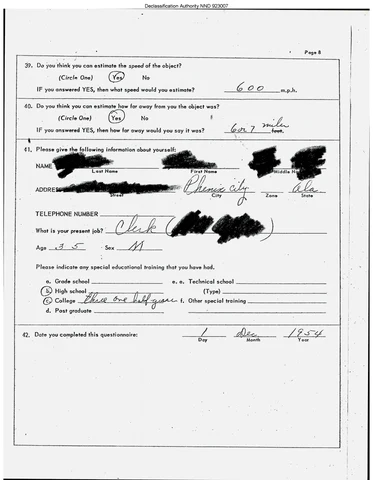 Declassification Authority NND 923007
Page 8
39. Do you think you can estimate the speed of the object?
(Circle One) Yes No
IF you answered YES, then what speed would you estimate? 600 m.p.h.
40. Do you think you can estimate how far away from you the object was?
(Circle One) Yes No
IF you answered YES, then how far away would you say it was? 6 or 7 miles feet.
41. Please give the following information about yourself:
NAME
Last Name First Name Middle Name
ADDRESS Phenix City Ala
Street City Zone State
TELEPHONE NUMBER
What is your present job? Clerk (
Age 35 Sex M
Please indicate any special educational training that you have had.
a. Grade school e. Technical school
b. High school (Type)
c. College three one half year f. Other special training
d. Post graduate
42. Date you completed this questionnaire: 1 Dec 1954
Day Month Year